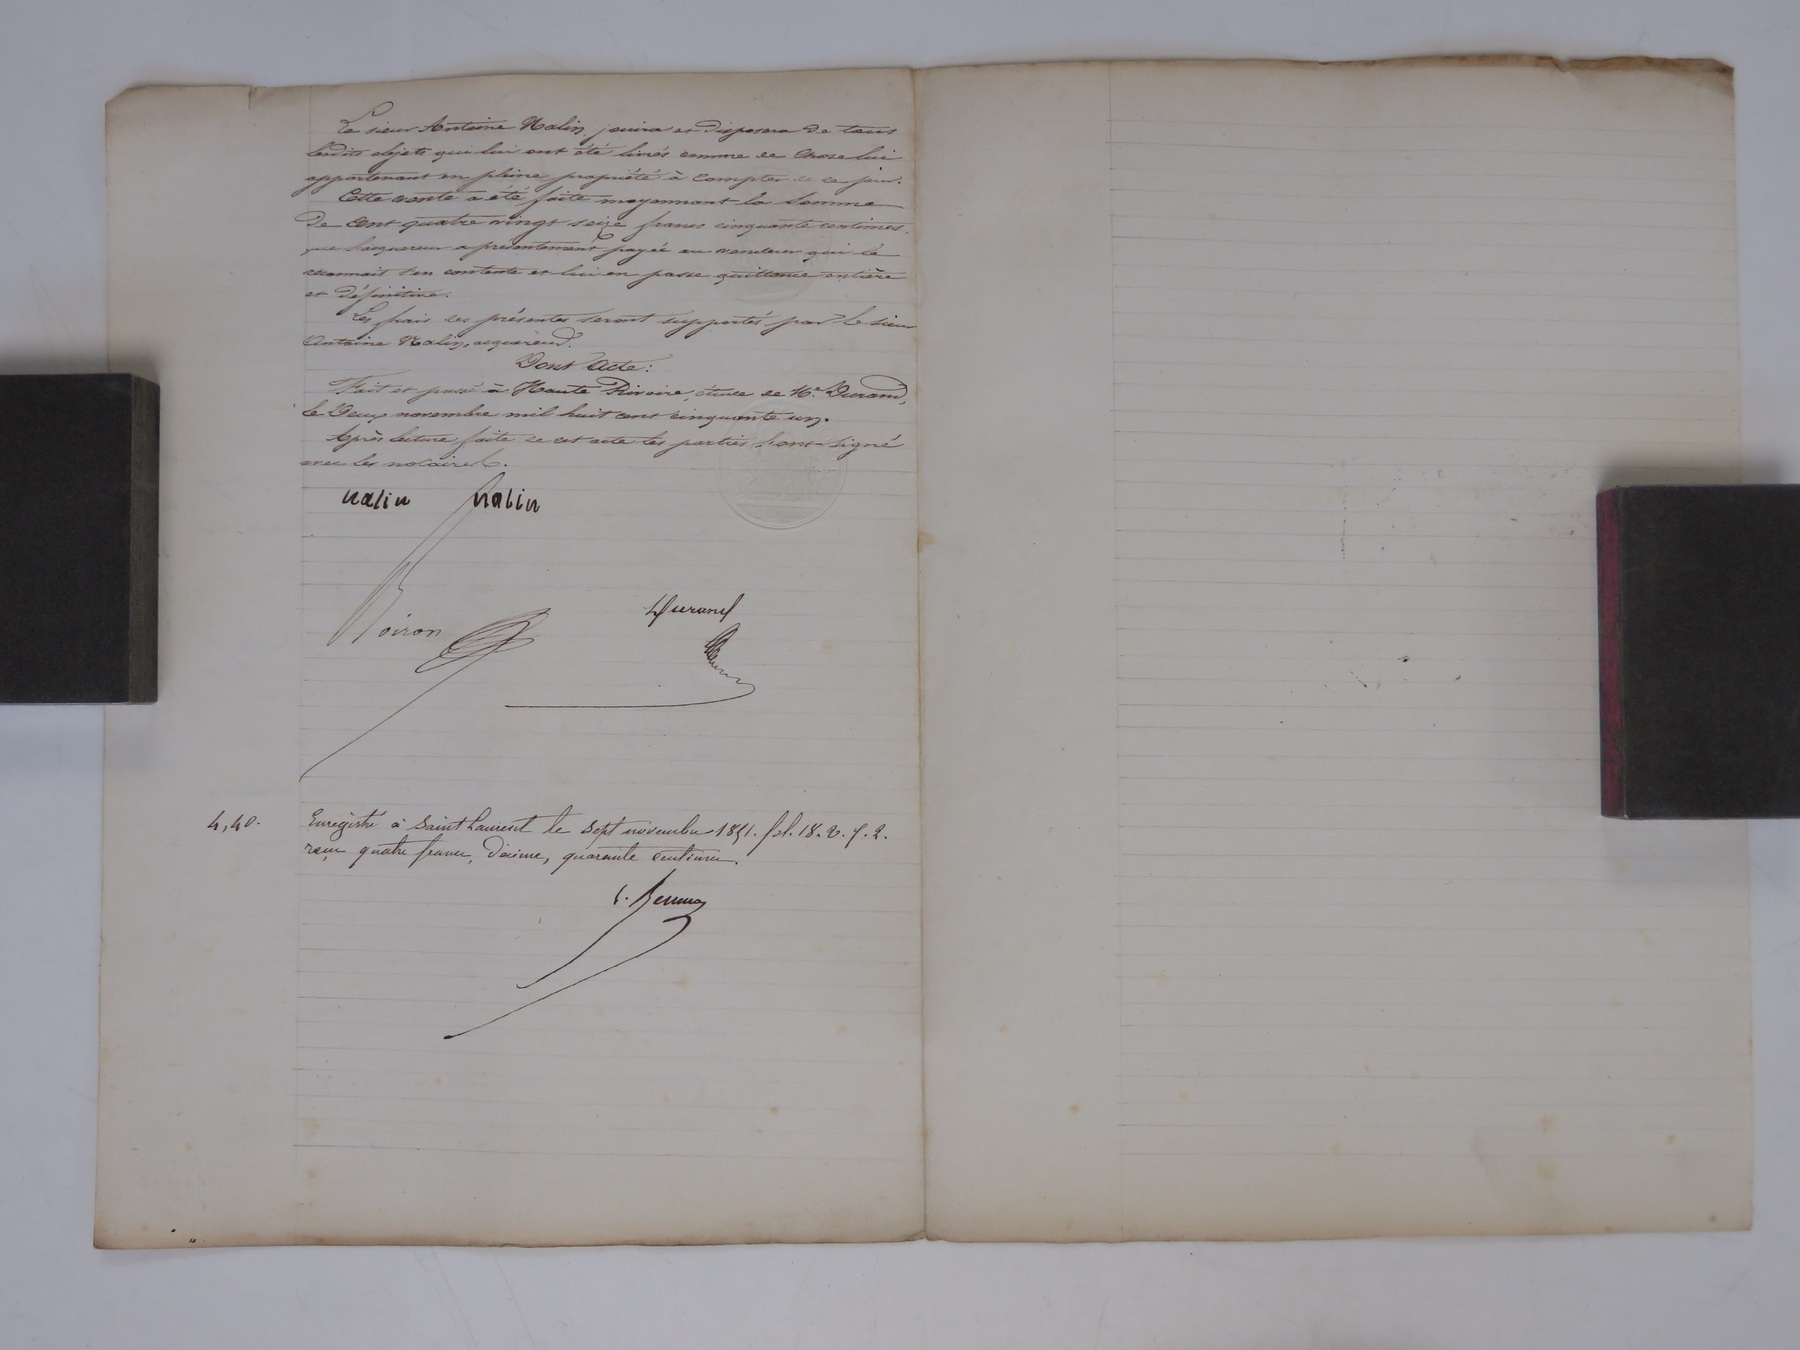 Le sieur Antoine Nalin, jouira et disposera de tous
lesdits objets qui lui ont été livrés comme de chose lui
appartenant en pleine propriété à compter de ce jour.
Cette vente a été faite moyennant la somme
de cent quatre vingt seize francs cinquante centimes,
que l'acquereur a présentement payée au vendeur qui le
reconnait s'en contente et lui en passe quittance entière
et définitive.
Les frais des présentes seront supportés par le sieur
Antoine Nalin, acquereur.
Dont Acte:
Fait et passé à Haute Rivoire, étude de Me Durand,
le Deux novembre mil huit cent cinquante un.
Après lecture faite de cet acte les parties l'ont signé
avec les notaires.
nalin nalin
Durand
Noiron
4,40.
Enregistré à Saint Laurent le sept novembre 1851. fol. 18. v. c. 2.
reçu quatre francs, décime, quarante centimes.